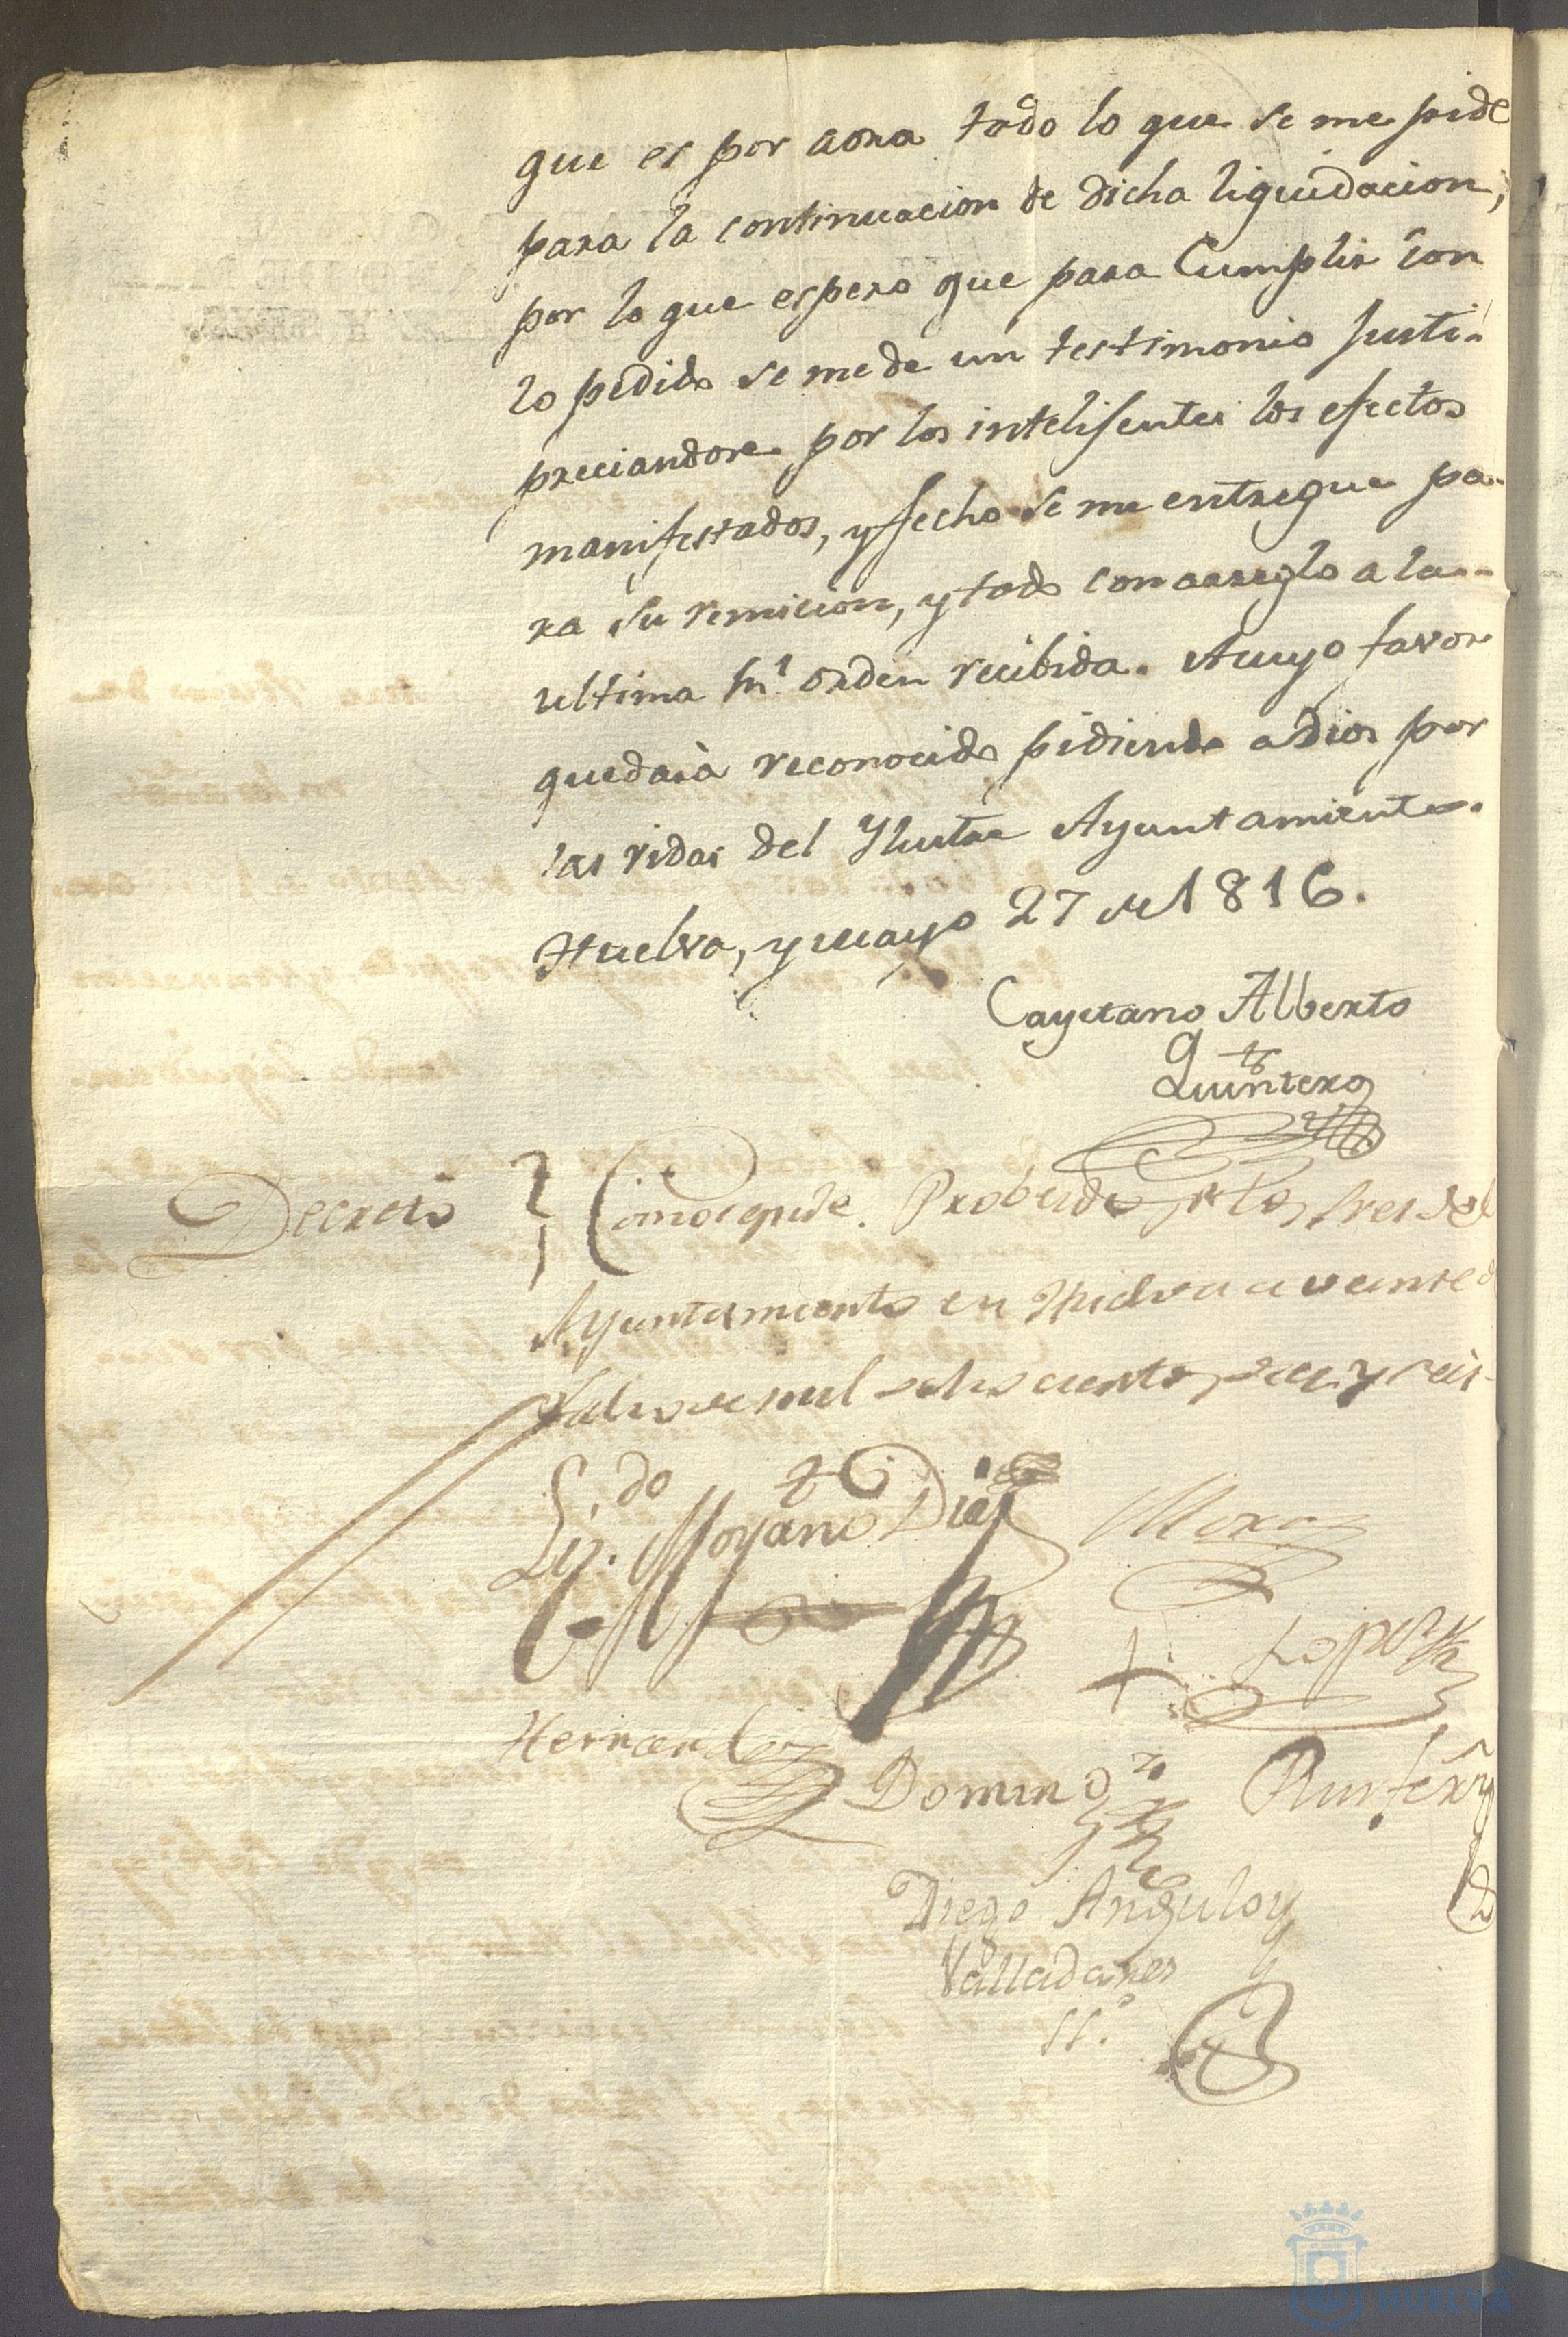 que es por aora todo lo que se me pide
para la continuacion de dicha liquidacion,
por lo que espero que para Cumplir con
lo pedido se me de un testimonio Justi-
preciandose por los intelisentes los efectos
manifestados, y fecho se me entregue pa-
ra su remicion, y todo con arreglo a la
ultima Rl. orden recibida. A cuyo favor
quedarà reconocido pidiendo a Dios por
las vidas del Ylustre Ayuntamiento.
Huelva, y mayo 27 de 1816.
Cayetano Alberto
Quintero
Decreto Como se pide. Probeido pr. los Sres. del
Ayuntamiento en Huelva a veinte
Julio de mil ochocientos diez y seis
Lizdo. Moyano Diaz Mora
Lopez
Hernandez Domingz
Diego Angulo y
Valladares
sso.
Ayuntamiento de
HUELVA